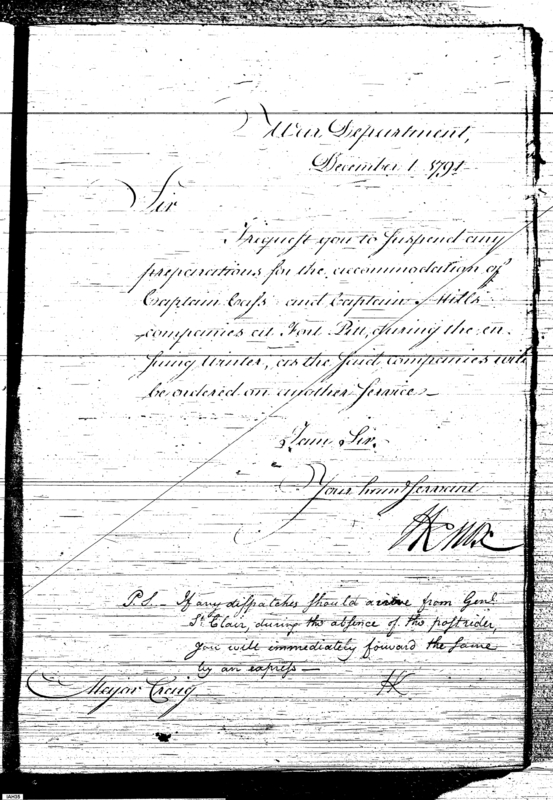 War Department,
December 1 1791
Sir
I request you to suspend any
preparations for the accommodation of
Captain Cass and Captain Mills
companies at Fort Pitt, during the en-
suing Winter, as the said companies will
be ordered on another service—
I am Sir.
Your hum Servant
HKnox
P.S.— If any dispatches should arrive from Genl.
St. Clair, during the absence of the postrider,
you will immediately forward the same
by an express—
HK
Major Craig
IAH35